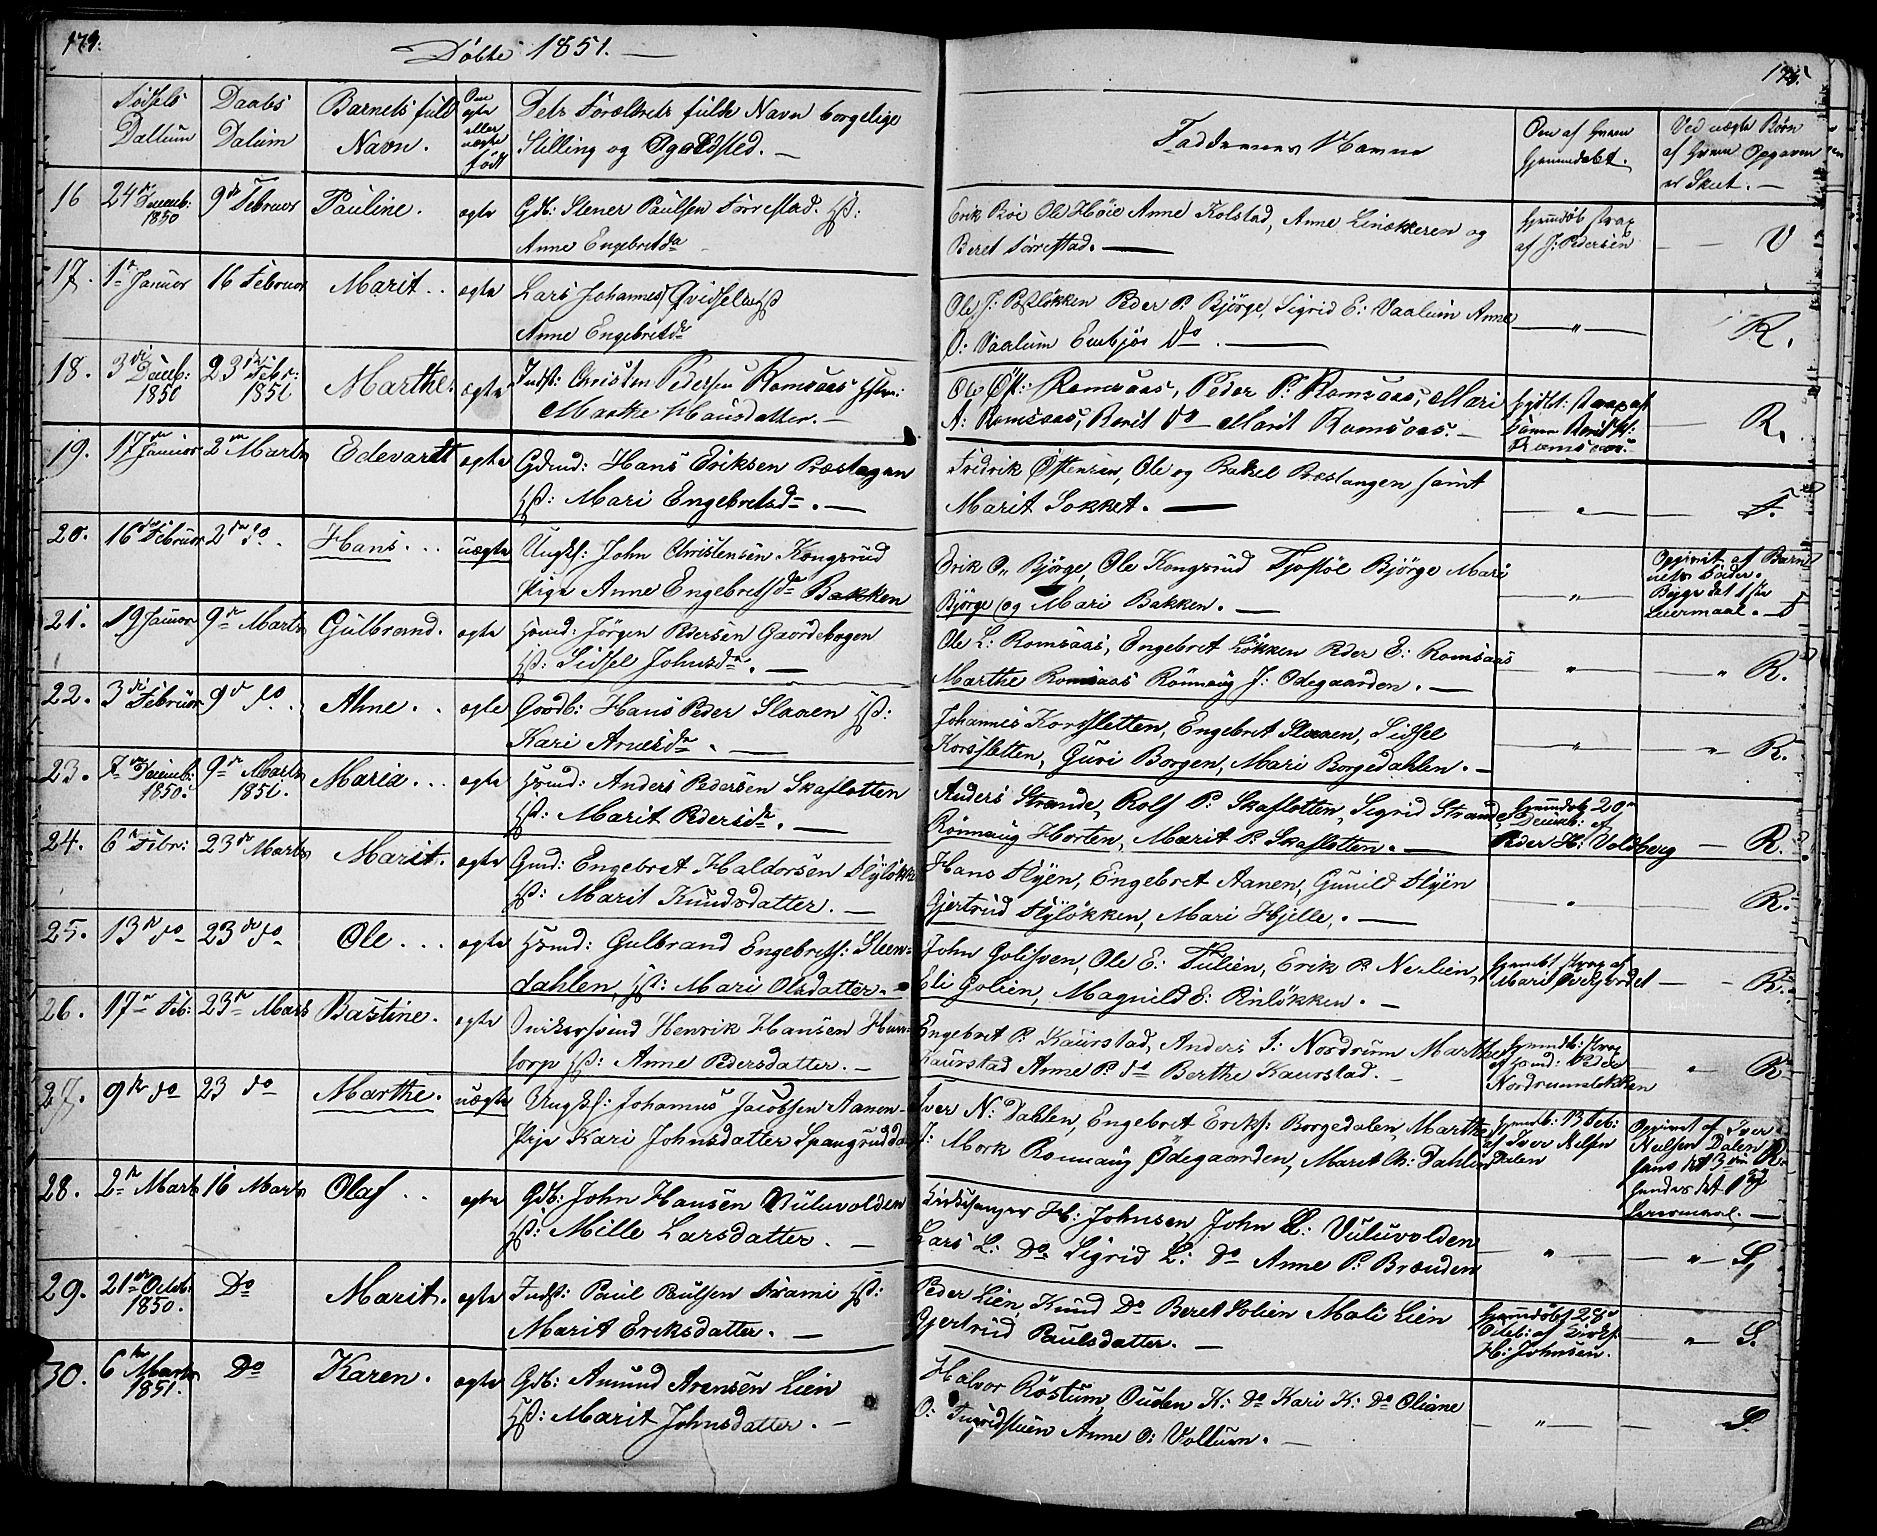 174.
Döbte 1851. —
Födsels Dattum
Daabs Datum
Barnets fulde Navn.
Om ægte eller uægte Født
Dets Forældrets fulde Navn borgelige
Stilling og Opholdsted. —
16 24de Decemb: 1850 9de Februar Pauline. ægte Gdb: Stener Paulsen Forrestad. Hst:
Anne Engebretsda
17. 1ste Januar 16 Februar Marit . . ægte Lars Johannes Qvidselen Hst
Anne Engebretsdr
18. 3die Decemb: 1850 23de Febr: 1851 Marthe. ægte Indst: Christen Pedersen Romsaas Hstru:
Marthe Hansdatter. —
19. 17de Januar 2den Marts Edevardt ægte Gdmd: Hans Eriksen Præstagen
Hst: Mari Engebretsdr. —
20. 16de Februar 2den do. Hans . . . uægte Ungkl: John Christensen Kongsrud
Pige Anne Engebretsdr Bakken
21. 19 Januar 9de Marts Gulbrand. ægte Hsmd: Jörgen Pedersen Gaardebogen
Hst: Sidsel Johnsdr. —
22. 3die Februar 9de do. Ahne . . ægte Gaardb: Hans Peder Slaaen Hst:
Kari Arnesdr. —
23. 7de Decemb: 1850. 9de Marts 1851. Maria . . . ægte Hsmd: Anders Pedersen Skaflotten
Hst: Marit Pedersdr. —
24. 6te Febr: 23de Marts Marit. ægte Gmd: Engebret Haldorsen Flyløkk
Hst: Marit Knudsdatter. —
25. 13de do 23de do Ole . . . ægte Hsmd: Gulbrand Engebretss: Steen-
dahlen, Hst: Mari Olsdatter. —
26. 17de Feb: 23de Mars Bastine. ægte Inderstmd Henrik Hansen Hun-
torp Hst: Anne Pedersdatter. —
27. 9de do 23 do Marthe. uægte Ungkl: Johannes Jacobsen Aanen-
Pige Kari Johnsdatter Spangrudda
28. 2den Marts 16 Marts Olaf . . ægte Gdb: John Hansen Vuluvolden
Hst: Mille Larsdatter. —
29. 21de Octob: 1850. Do Marit. ægte Indst: Paul Paulsen Krami Hst:
Marit Eriksdatter. —
30. 6te Marts 1851. Do Karen. ægte Gdb: Amund Arensen Lien
Hst: Marit Johnsdatter. —
175.
Faddernes Navne
Om af hvem hjemmedøbt.
Ved uægte Børn af hvem Opgaven er Skeet. —
Erik Boe Ole Höie Anne Kolstad, Anne Linækkeren og
Beret Forrestad. —
Hjemdöb strax af J: Pedersen — V
Ole J: Bøeløkken Peder P: Bjørge, Sigrid E: Vaalum Anne
O: Vaalum Embjör Do. —
— „ — R.
Ole Öst: Romsaas, Peder P: Romsaas, Mari
A: Romsaas, Berit do — Marit Romsaas. —
Hjdbt: strax af
Romsaas. — R.
Fredrik Östensen, Ole og Rakel Præstangen samt
Marit Sokket. —
— „ — F.
Erik O„ Bjørge, Ole Kongsrud Tjostøl Bjørge Mari
Bjørge og Mari Bakken. —
— „ — Opgivet af Barnets Fader. Begge det 1ste Leiermaal. — F
Ole L: Romsaas, Engebret Lökken Peder E: Romsaas
Marthe Romsaas Rönnaug J: Ødegaarden. —
— „ — — „ R.
Johannes Korsfletten, Engebret Slaaen, Sidsel
Korsfletten, Guri Borgen, Mari Borgedahlen. —
— „ — „ R.
Anders Strande, Rolf P: Skaflotten, Sigrid Strande,
Rönnaug Horten, Marit P: Skaflotten. —
Hjemdöb 20de Decemb: af Peder H: Voldberg — R.
Hans Flyen, Engebret Aanen, Gunild Flyen
Gjertrud Flylökken, Mari Hjelle. —
— „ — R.
John Goliesven, Ole E: Fulien, Erik P: Nerlien,
Eli Golien, Magnild E: Rinlökken. —
Hjembt strax af Marit Øverjordet — R.
Engebret P: Kaurstad, Anders I: Nordrum Marthe
Kaurstad Anne P: do Berthe Kaurstad. —
Hjemdb: strax af Hsmd: Peder Nordrumslökken „ R
Iver N: Dahlen, Engebret Eriks: Borgedalen, Marthe
J: Mork Rönnaug Ødegaarden, Marit Ch: Dahlen
Hjemdb: 13 Feb: af Iver Nelsen Dalen
Opgivet af Iver Neilsen Dalen hans det 3die hendes det 1ste Leiermaal. — R.
Kirkesanger H: Johnsen, John H: Vuluvolden
Lars L: Do Sigrid L: Do Anne P: Brænden
— „ — „ — S,
Peder Lien, Knud Do Beret Solien Mali Lien
Gjertrud Paulsdatter. —
Hjemdöbt 28de Octob: af Kirks. H: Johnsen. — „ — S.
Halvor Röstum, Ouden K: Do Kari K: Do Oliane
O: Tuvidstuen Anne O: Vollum. —
— „ — S.